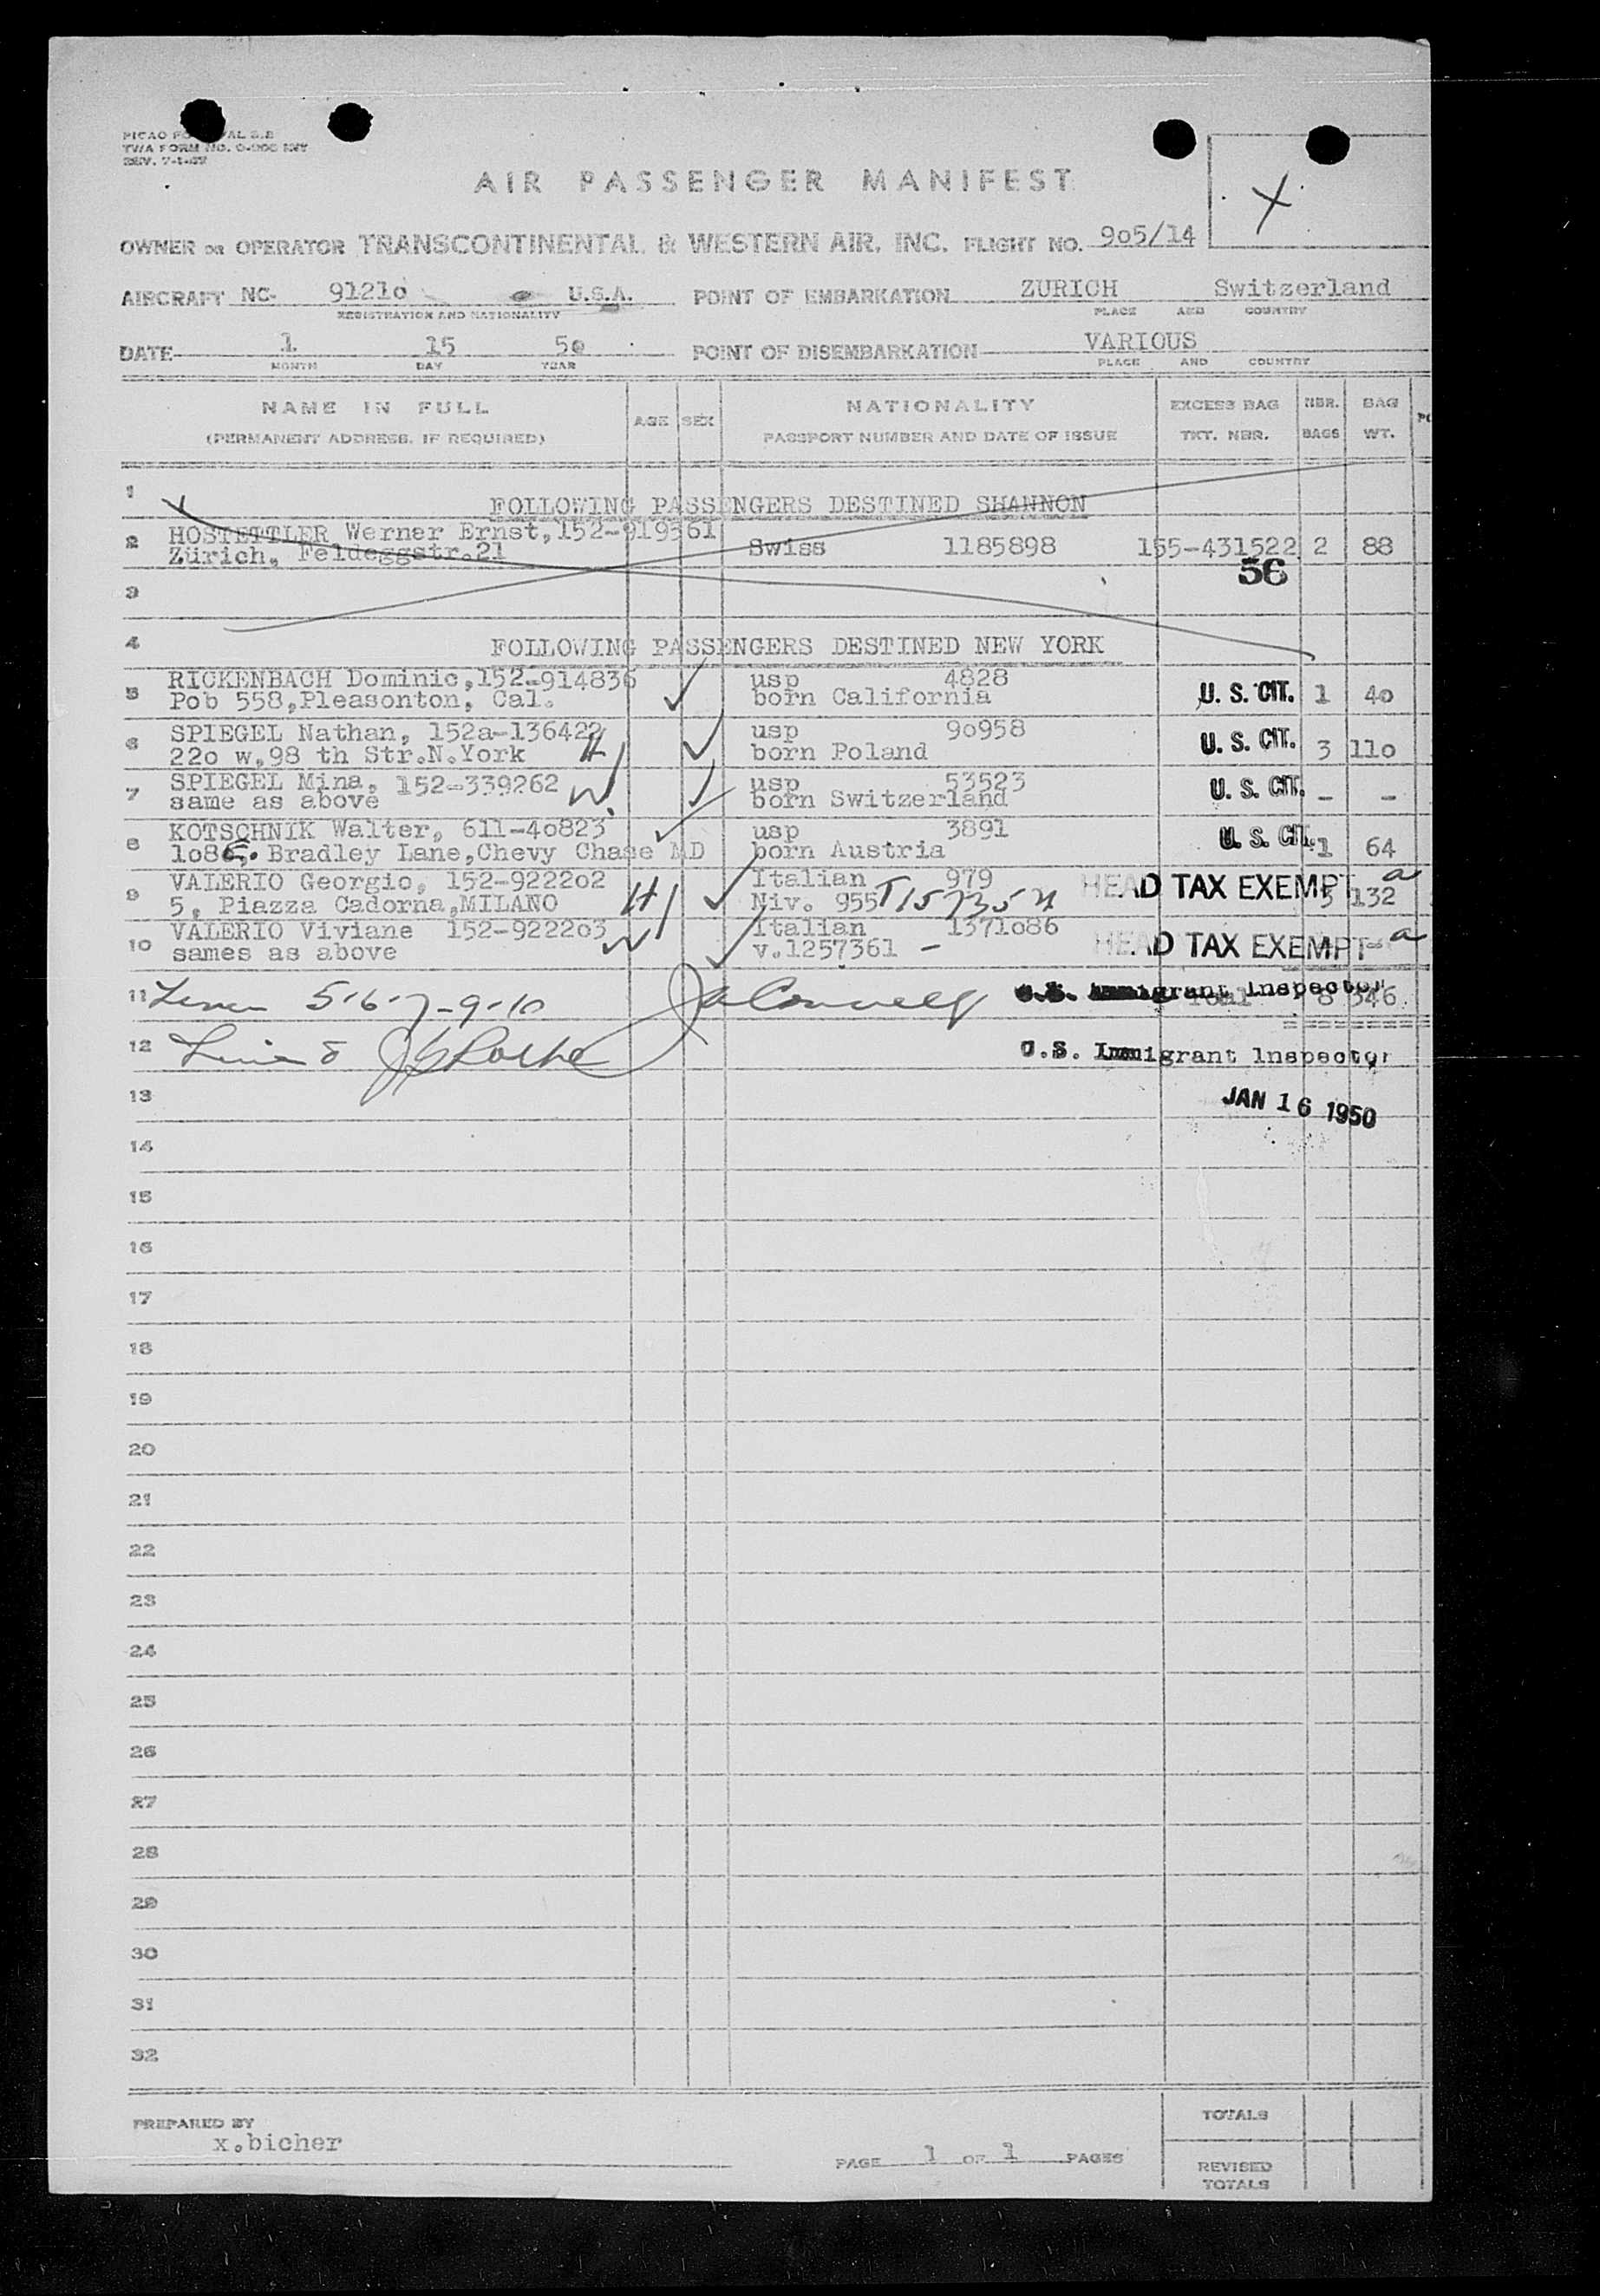 TWA FORM NO.
REV. 7-1-47
AIR PASSENGER MANIFEST
X
OWNER OR OPERATOR TRANSCONTINENTAL & WESTERN AIR, INC. FLIGHT NO. 905/14
AIRCRAFT NC- 91210 U.S.A. POINT OF EMBARKATION ZURICH Switzerland
REGISTRATION AND NATIONALITY PLACE AND COUNTRY
DATE 1 15 50 POINT OF DISEMBARKATION VARIOUS
MONTH DAY YEAR PLACE AND COUNTRY
NAME IN FULL AGE SEX NATIONALITY EXCESS BAG NBR. BAG
(PERMANENT ADDRESS, IF REQUIRED) PASSPORT NUMBER AND DATE OF ISSUE TKT. NBR. BAGS WT.
1 FOLLOWING PASSENGERS DESTINED SHANNON
2 HOSTETTLER Werner Ernst,152-919361
Zürich, Feldeggstr.21 Swiss 1185898 155-431522 2 88
56
3
4 FOLLOWING PASSENGERS DESTINED NEW YORK
5 RICKENBACH Dominic,152-914836 usp 4828
Pob 558,Pleasonton, Cal. born California U. S. CIT. 1 40
6 SPIEGEL Nathan, 152a-136422 usp 90958
220 w,98 th Str.N.York H born Poland U. S. CIT. 3 110
7 SPIEGEL Mina, 152-339262 W usp 53523
same as above born Switzerland U. S. CIT. - -
8 KOTSCHNIK Walter, 611-40823 usp 3891
108 Bradley Lane,Chevy Chase MD born Austria U. S. CIT. 1 64
9 VALERIO Georgio, 152-922202 Italian 979
5, Piazza Cadorna,MILANO H Niv. 955 HEAD TAX EXEMPT 3 132
10 VALERIO Viviane 152-922203 W Italian 1371086
sames as above v.1257361 - HEAD TAX EXEMPT
11 5-6-7-9-10 U.S. Immigrant Inspector 8 346
12 U.S. Immigrant Inspector
13 JAN 16 1950
14
15
16
17
18
19
20
21
22
23
24
25
26
27
28
29
30
31
32
PREPARED BY x.bicher
PAGE 1 OF 1 PAGES
TOTALS
REVISED
TOTALS